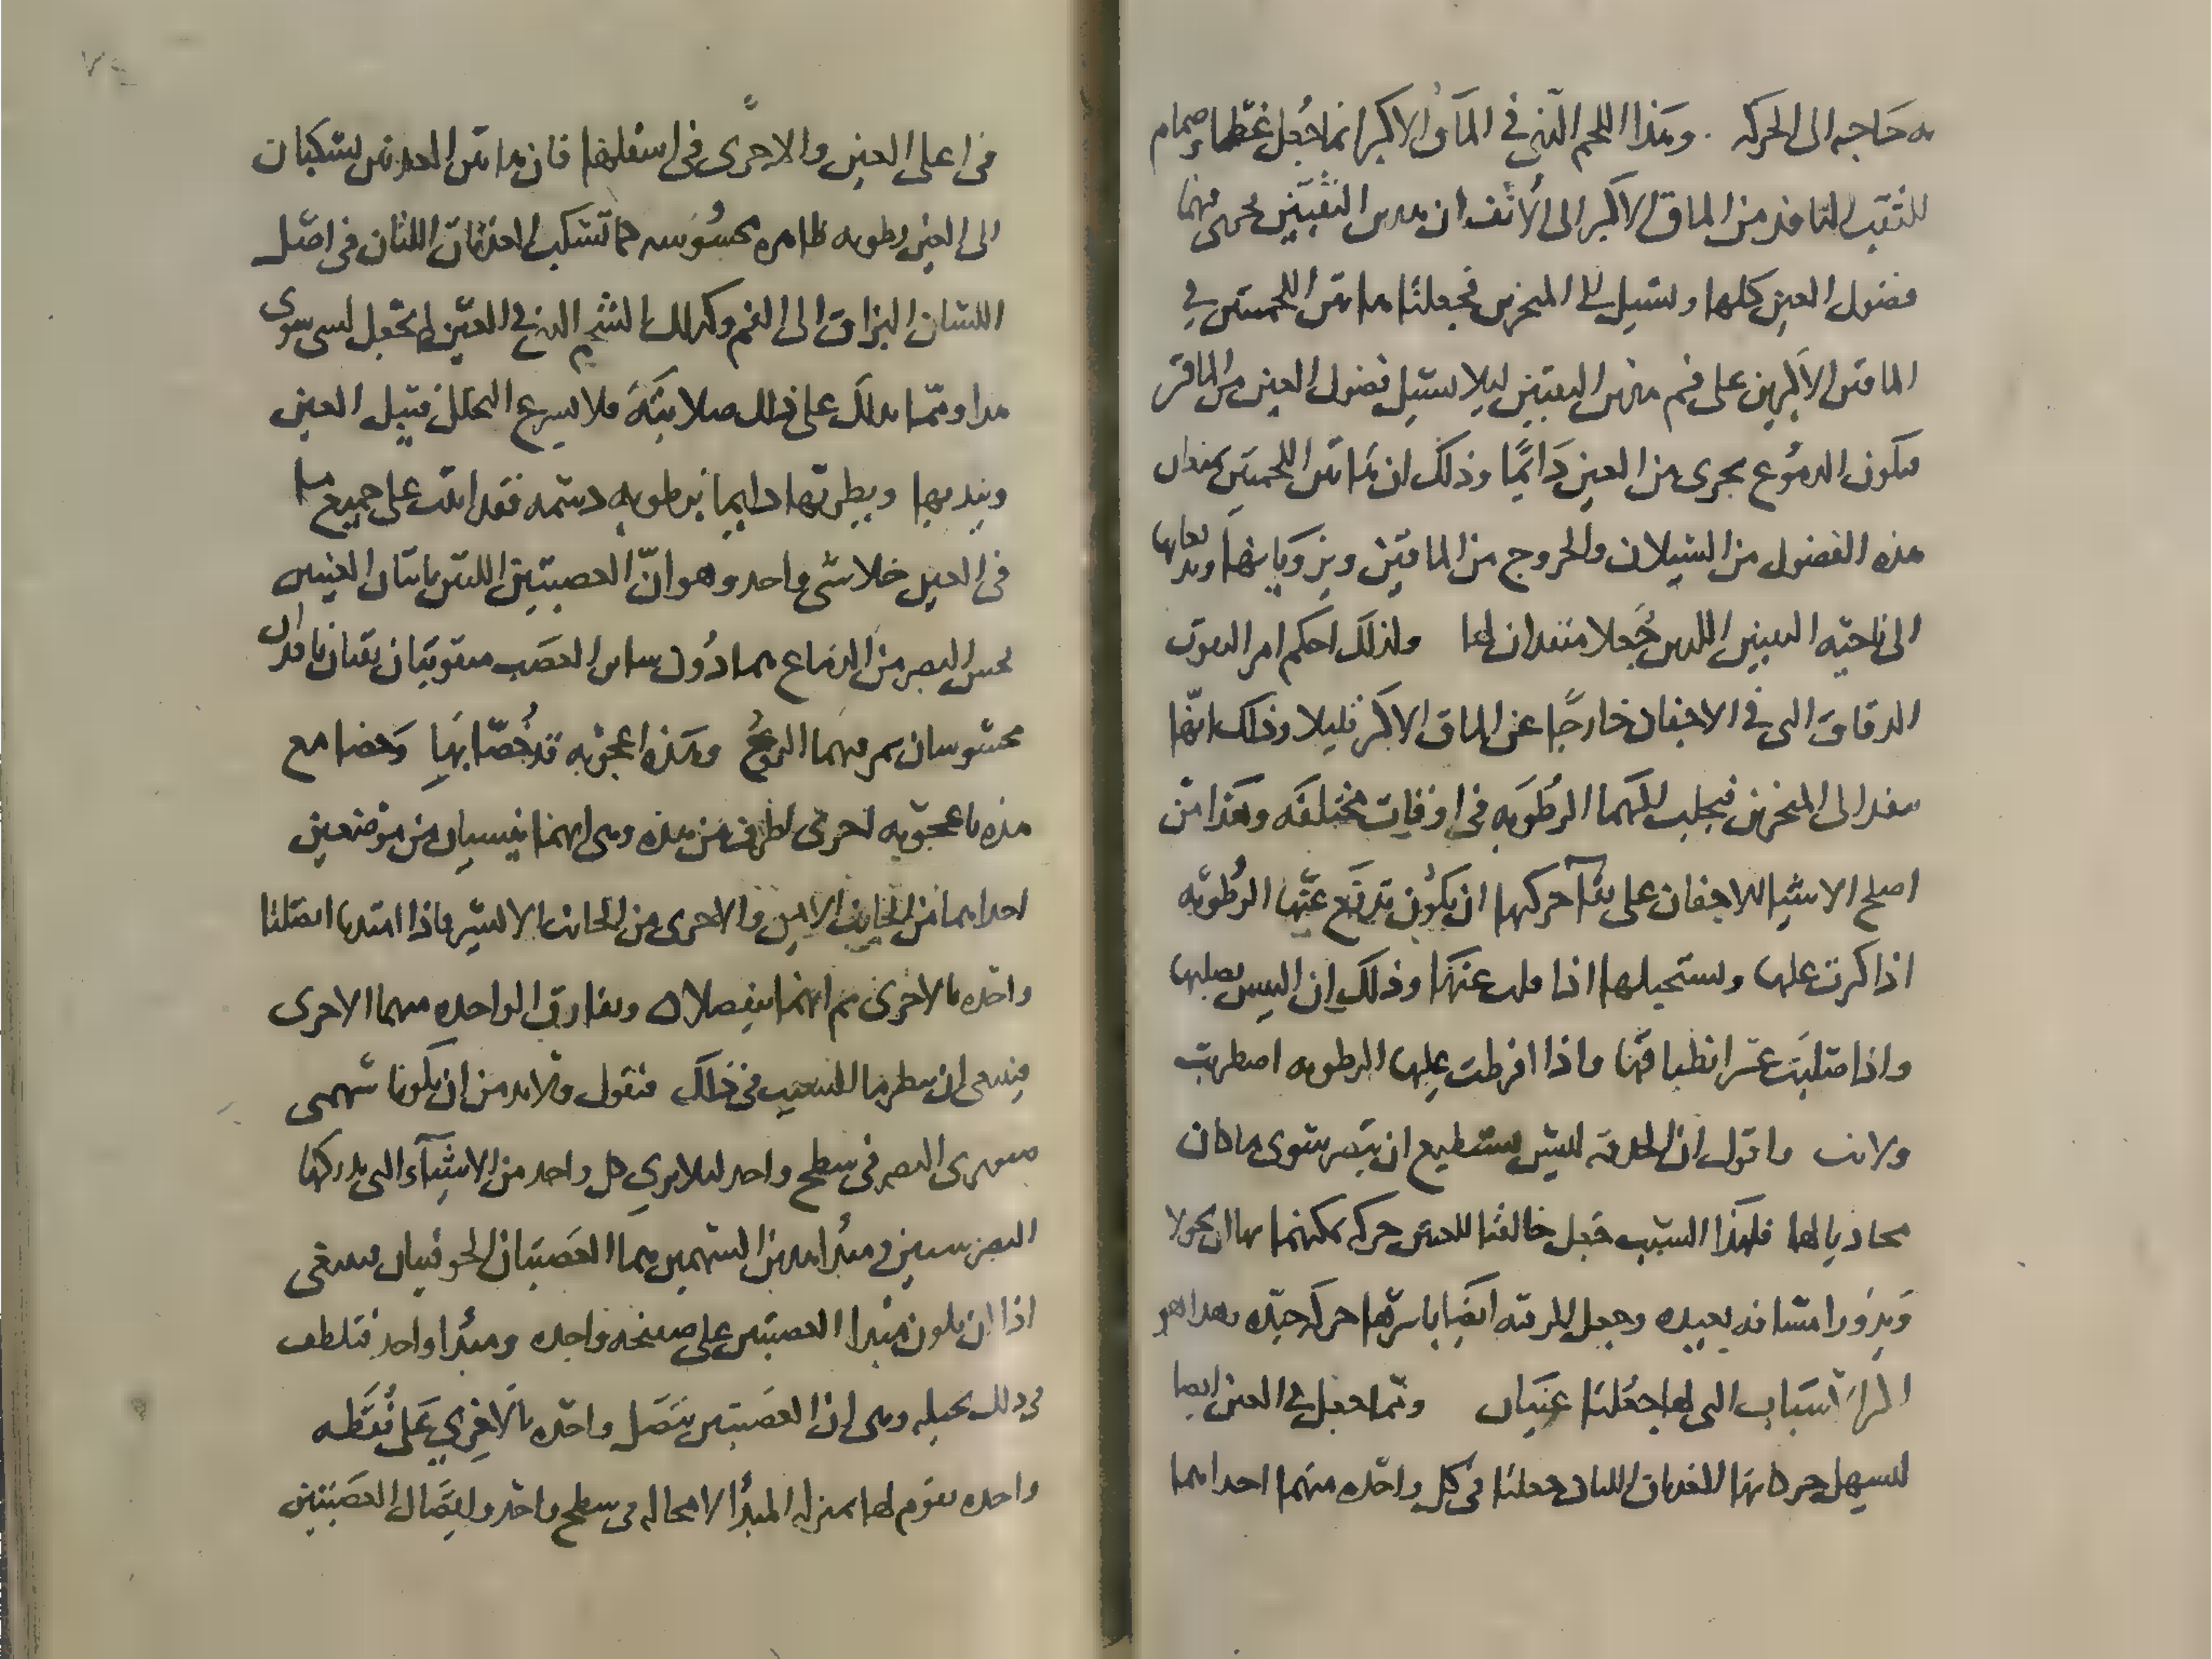 به حاجه الى الحركه . وهذا اللحم الذي في الماق الاكبر انما جعل غطا وصمام
للثقب النافذ من الماق الاكبر الى الانف ان هدين الثقبين يجرى فيهما
فضول العين كلها وتسيل الى المنخرين فجعلتا هاتين اللحمتين في
الماقين الاكبرين على فم هذين الثقبين ليلا تسيل فضول العين من الماقين
فتكون الدموع تجرى من العين دايمًا وذلك ان هاتين اللحمتين يمنعان
هذه الفضول من السيلان والخروج من الماقين ويزويانها ويدفعانها
الى ناحية الثقبين اللدين جعلا منفدان لها ولذلك احكم امر الثقوب
الدقاق التى في الاجفان خارجًا عن الماق الاكبر قليلا وذلك انها
تنفد الى المنخرين فيجلب اليهما الرطوبه في اوقات مختلفه وهذا من
اصلح الاشيا للاجفان على بقآ حركتها ان يكون تدفع عنها الرطوبه
اذا كثرت عليها وتستجلبها اذا قلت عنها وذلك ان اليبس يصلبها
واذا صلبت عسر انطباقها واذا افرطت عليها الرطوبه اضطربت
ولانت واقول ان الحدقه ليس تستطيع ان تبصر سوى ما كان
محاديا لها فلهذا السبب جعل خالقنا للعينين حركه يمكنهما بها ان يجولا
ويدورا مسافه بعيده وجعل للرقبه ايضا باسرها حركه جيده بهذا هو
الاسباب التى لها جعلتا عينان ومما جعل في العين ايضا
لتسهل حركاتها الغددتان اللتان جعلتا في كل واحده منهما احداهما
في اعلى العين والاخرى في اسفلها فان هاتين الغدتين تسكبان
الى العين رطوبه ظاهره محسوسه كما تسكب الغدتان اللتان في اصل
اللسان البزاق الى الفم وكذلك الشحم الذي في العين لم تجعل لشى سوى
هدا ومما يدلك على ذلك صلابته فلا يسرع التحلل فيبل العين
ويندبها ويطريها دايما برطوبه دسمه فقد اتيت على جميع ما
في العين خلا شى واحد وهو ان العصبتين اللتين ياتيان العينين
بحس البصر من الدماغ هما دون ساير العصب مثقوبتان ثقبان نافدان
محسوسان يمر فيهما الروح وهذه اعجوبه قد خصتا بها وخصا مع
هذه باعجوبه اخرى اطرف من هذه وهى انهما ينبتان من موضعين
احداهما من الجانب الايمن والاخرى من الجانب الايسر فاذا امتدتا اتصلتا
واحده بالاخرى ثم انهما ينفصلان وتفارق الواحده منهما الاخرى
فينبغى ان يطرنا للسبب في ذلك فنقول ولابد من ان يكونا سهمى
مجرى البصر في سطح واحد ليلا يرى كل واحد من الاشيآء التى يدركها
البصر شيين ومبدا هذين السهمين هما العصبتان الجوفيتان فينبغى
اذا ان يكون مبدا العصبتين على صفحه واحده ومبدا واحد فتلطف
في ذلك بحيله وهى ان العصبتين يتصل واحده بالاخرى على نقطه
واحده تقوم لها بمنزله المبدأ لا محاله في سطح واحد ولاتصال العصبتين